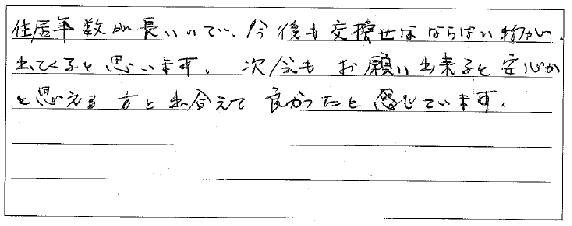 住居年数が長いいので、今後も交換せねばならない物が、
出てくると思います。次回もお願い出来ると安心か
と思える方と出会えて良かったと感じています。